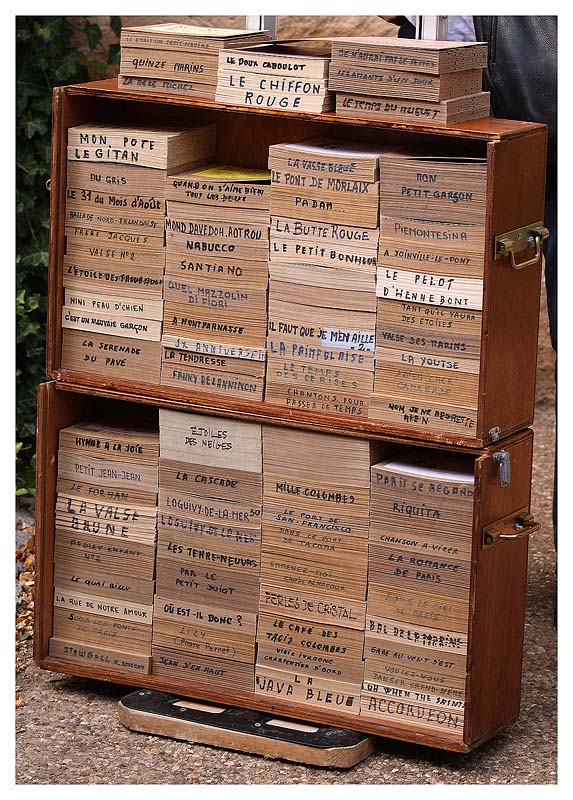 IL ÉTAIT UN PETIT NAVIRE
QUINZE MARINS
LA MÈRE MICHEL
LE DOUX CABOULOT
LE CHIFFON
ROUGE
JE N'AURAI PAS LE TEMPS
LES AMANTS D'UN JOUR
LE TEMPS DU MUGUET
MON POTE
LE GITAN
DU GRIS
LE 31 DU MOIS D'AOÛT
BALLADE NORD-IRLANDAISE
FRÈRE JACQUES
VALSE N°2
L'ÉTOILE DES
NINI PEAU D'CHIEN
C'EST UN MAUVAIS GARÇON
LA SERENADE
DU PAVÉ
QUAND ON S'AIME BIEN
TOUS LES DEUX
MOND DAVEDOH.AOTROU
NABUCCO
SANTIANO
QUEL MAZZOLIN
DI FIORI
A MONTPARNASSE
JX ANNIVERS
LA TENDRESSE
FANNY DE LANNINON
LA VALSE BLEUE
LE PONT DE MORLAIX
PADAM
LA BUTTE ROUGE
LE PETIT BONHEUR
IL FAUT QUE JE M'EN AILLE
2.
LA PAIMPOLAISE
LE TEMPS
DES CERISES
CHANTONS POUR
PASSER LE TEMPS
MON
PETIT GARÇON
PIEMONTESINA
A JOINVILLE-LE-PONT
LE PELOT
D'HENNEBONT
TANT QU'IL YAURA
DES ÉTOILES
VALSE DES MARINS
LA YOUTSE
ADIEU CHER
CAMARADE
NON JE NE REGRETTE
RIEN
HYMNE A LA JOIE
PETIT JEAN-JEAN
LE FORBAN
LA VALSE
BRUNE
MEDLEY ENFANT
N°2
LE QUAI
LA RUE DE NOTRE AMOUR
SOUS LES PONTS
DE PARIS
STEWBALL
ÉTOILES
DES NEIGES
LA CASCADE
LOGUIVY-DE-LA-MER 30
LOGUIVY-DE-LA-MER
LES TERRE-NEUVAS
PAR LE
PETIT DOIGT
OÙ EST-IL DONC ?
LILY
(Pierre Perret)
JEAN D'EN HAUT
MILLE COLOMBES
LE PORT DE
SAN-FRANCISCO
DANS LE PORT
DE TACOMA
EMMENEZ-MOI
Charles AZNAVOUR
PERLES DE CRISTAL
LE CAFÉ DES
TROIS COLOMBES
CHARPENTIER D'OSARD
LA
JAVA BLEUE
PARIS SE REGARDE
RIQUITA
CHANSON A VIRER
LA ROMANCE
DE PARIS
SOUS LE CIEL
DE PARIS
BAL DE LA MARINE
GARE AU VENT D'EST
VOULEZ-VOUS
DANSER GRAND-MERE
OH WHEN THE SAINTS
ACCORDÉON